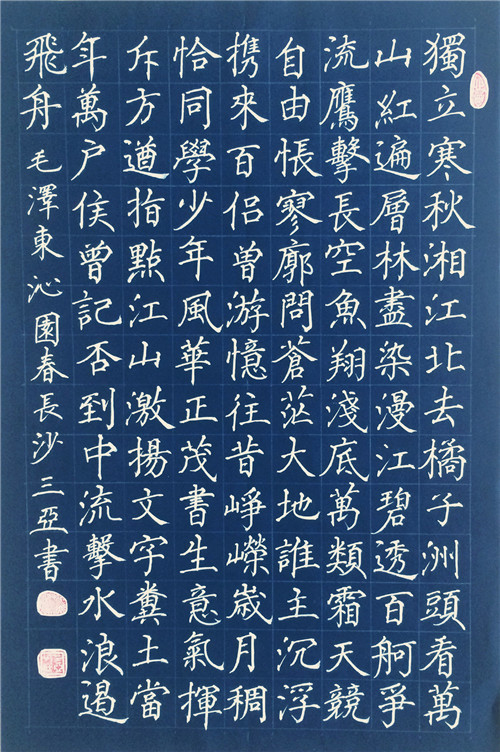 獨立寒秋湘江北去橘子洲頭看萬
山紅遍層林盡染漫江碧透百舸爭
流鷹擊長空魚翔淺底萬類霜天競
自由悵寥廓問蒼茫大地誰主沉浮
携來百侶曾游憶往昔崢嶸歲月稠
恰同學少年風華正茂書生意氣揮
斥方遒指點江山激揚文字糞土當
年萬户侯曾記否到中流擊水浪遏
飛舟 毛澤東沁園春長沙三亞書